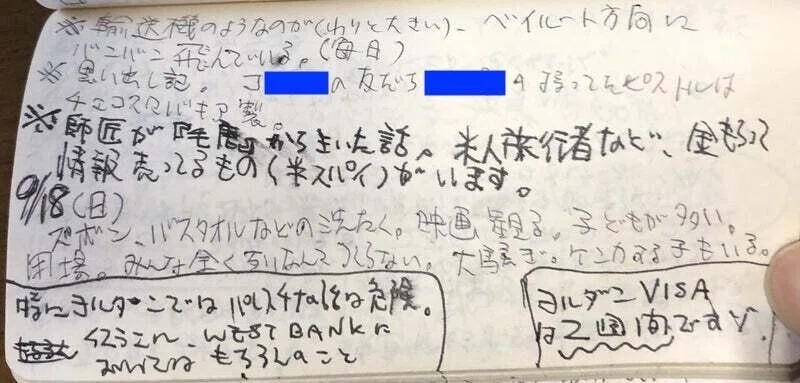 ※輸送機のようなのが(わりと大きい)、ベイルート方向に
バンバン飛んでいる。(毎日)
※思い出し記。 J の友だち が持ってたピストルは
チェコスロバキア製。
※師匠が『毛唐』からきいた話。米人旅行者など、金もらって
情報売ってるもの(米スパイ)がいます。
9/18(日)
ズボン、バスタオルなどの洗たく。映画観る。子どもが多い。
みんな全く 大騒ぎ。ケンカする子もいる。
特にヨルダンではパレスチナの話は危険。
WEST BANKに
おいてはもちろんのこと
ヨルダンVISA
は2週間ですヨ.